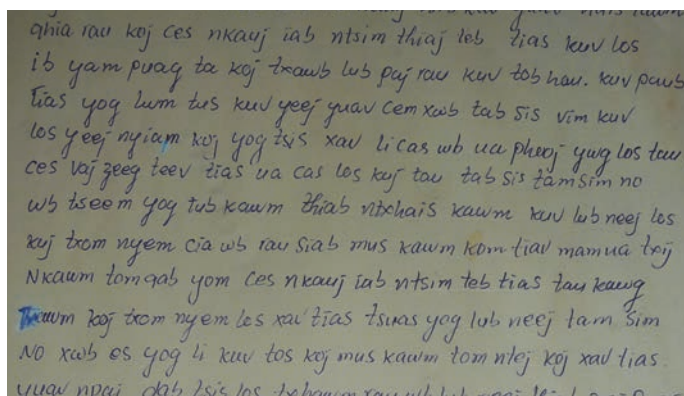 qhia rau koj ces nkauj iab ntsim thiaj leb tias kuv los
ib yam puag ta koj txawb lub paj rau kuv tob hau. kuv paub
tias yog lum tus kuv yeej yuav cem xwb tab sis vim kuv
los yeej nyiam koj yog tsis xav li cas wb ua phooj ywg los tau
ces vaj zeeg teev tias ua cas los kuj tau tab sis tam sim no
wb tseem yog tub kawm thiab ntxhais kawm kuv lub neej los
kuj txom nyem cia wb rau siab mus kawm kom tiav mamua txij
Nkawm tom qab yom ces nkauj iab ntsim teb tias tau kawg
koj txom nyem los xav tias tsuas yog lub neej tam sim
No xwb es yog li kuv tos koj mus kawm tom ntej koj xav tias
yuav npaj dab tsis los